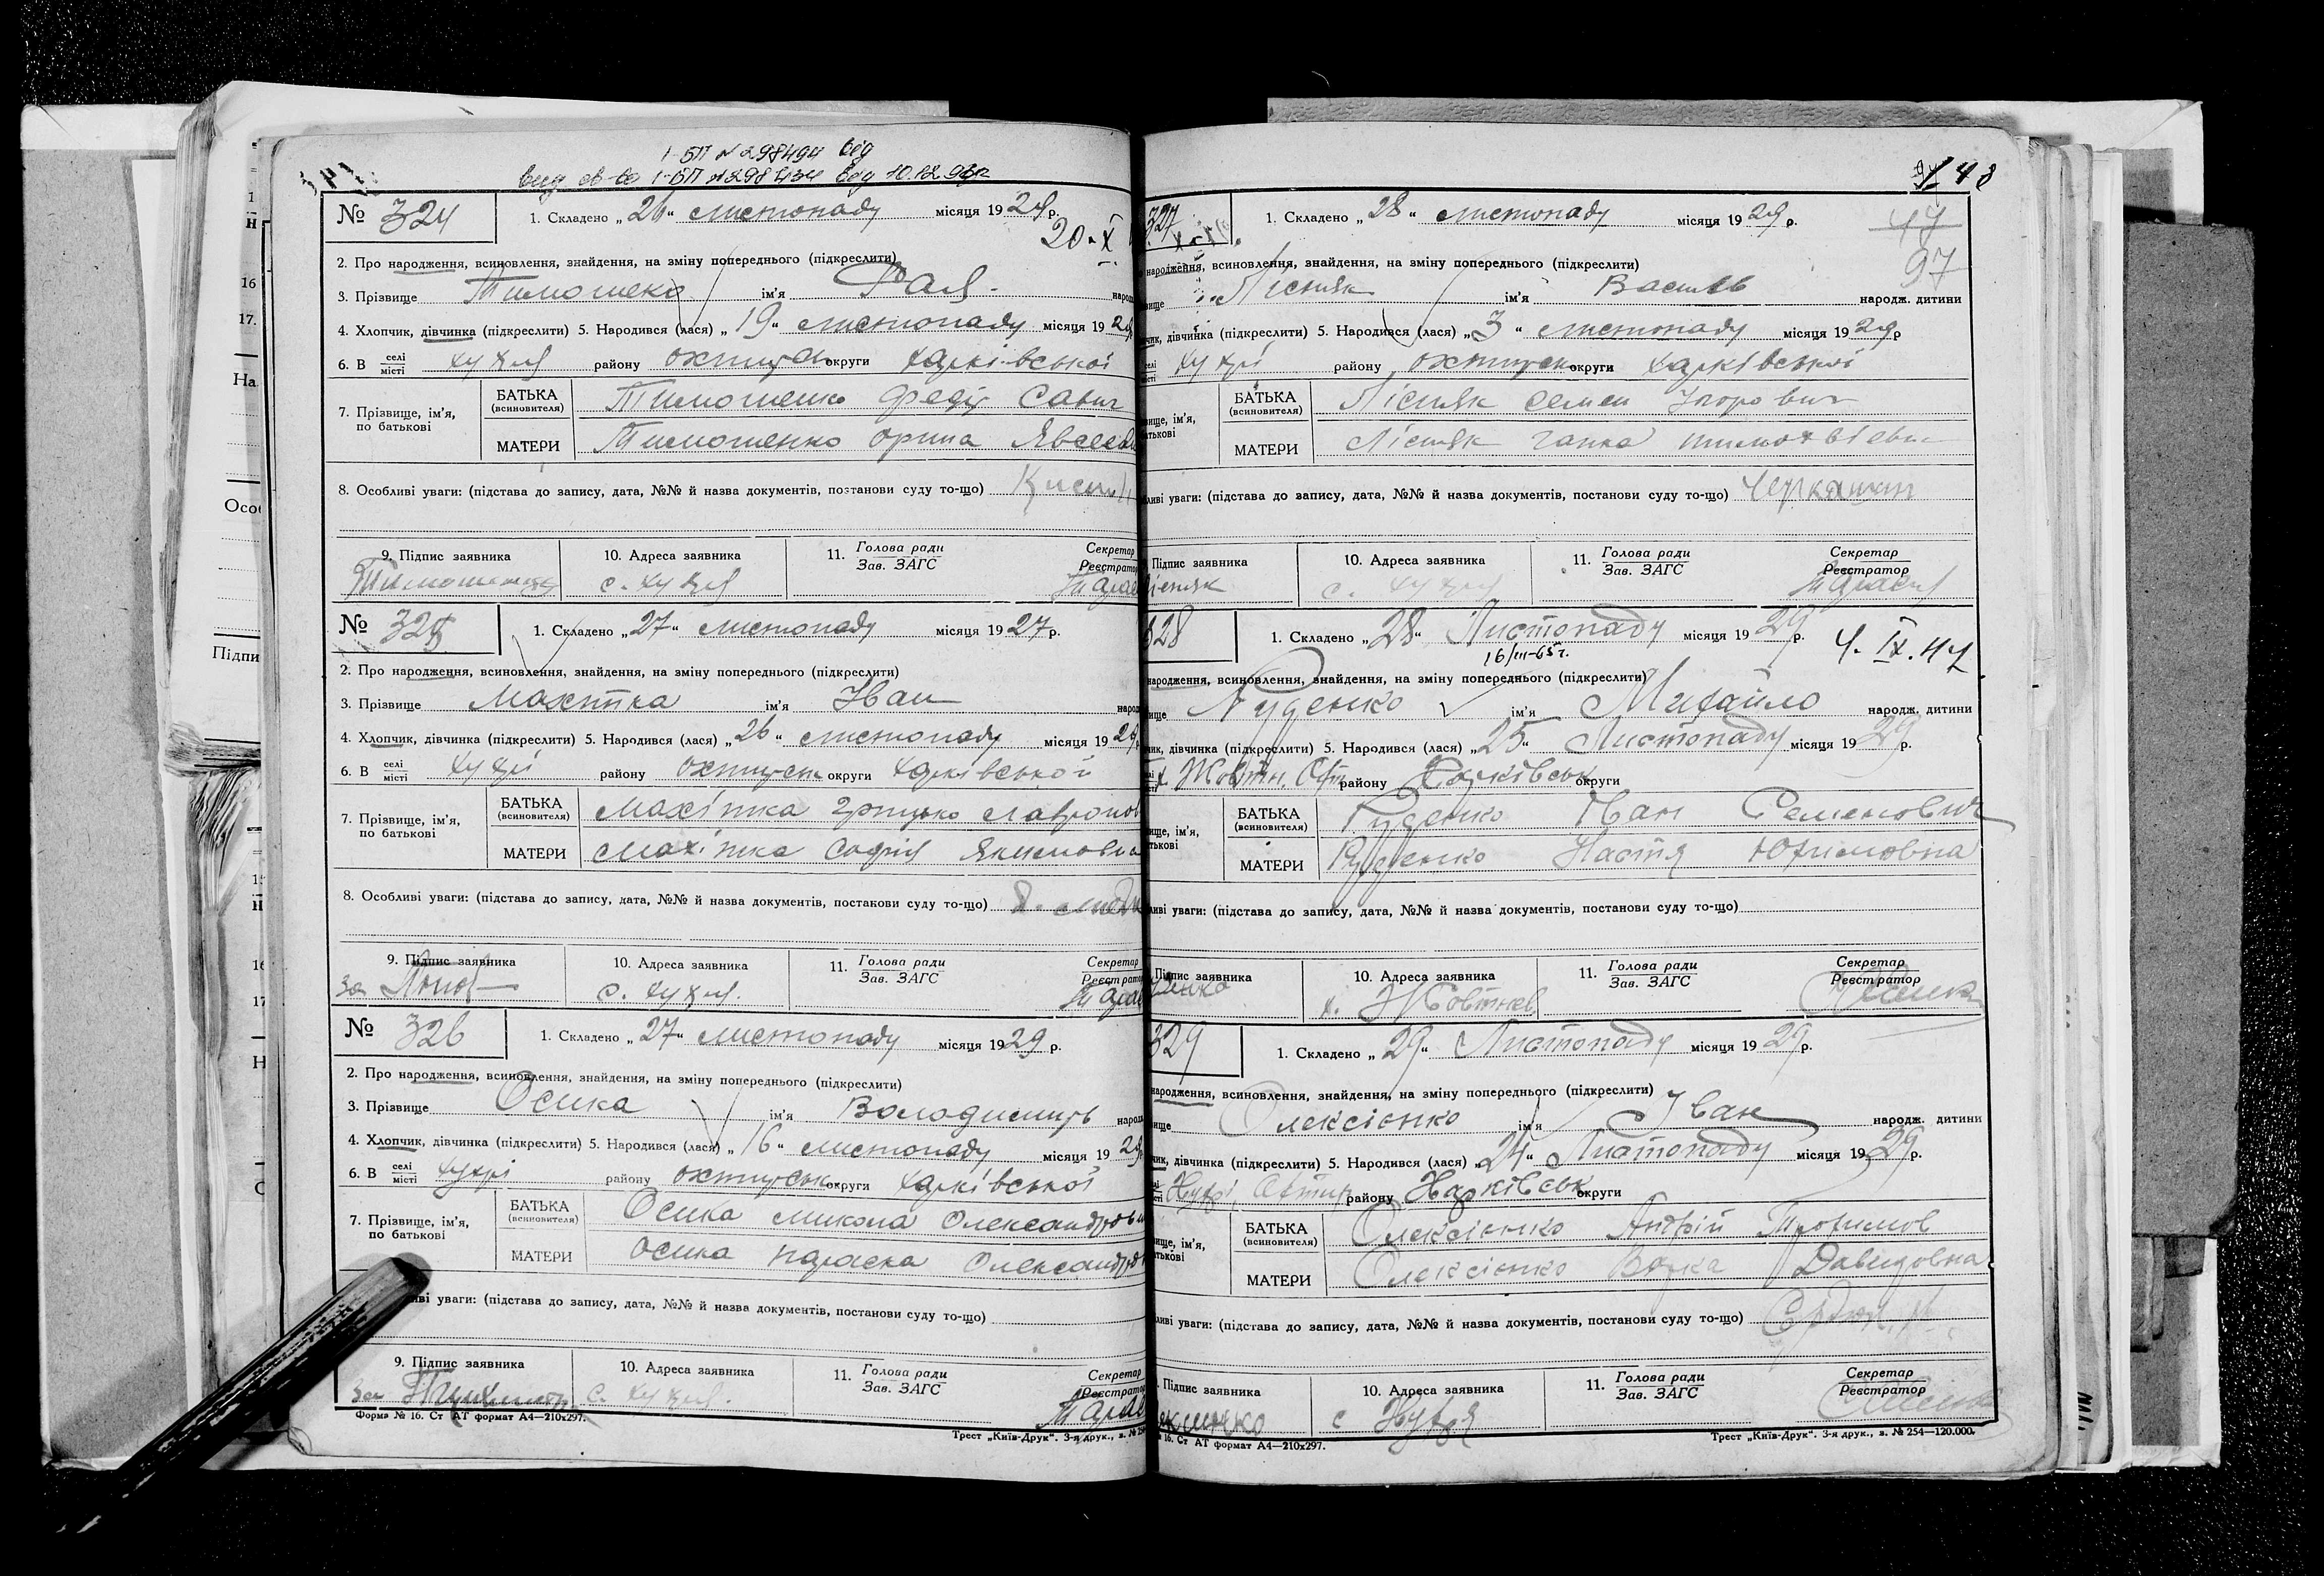 I-БП № 298494 від
вид св-во I-БП № 298494 від 10.12.93р
№ 324 1. Складено „26“ листопаду місяця 1929 р.
20.X
2. Про народження, всиновлення, знайдення, на зміну попереднього (підкреслити)
3. Прізвище Тимошенко ім'я Рая народ
4. Хлопчик, дівчинка (підкреслити) 5. Народився (лася) „19“ листопаду місяця 1929
6. В селі місті Хухря району Охтирськ округи Харківської
7. Прізвище, ім'я, по батькові
БАТЬКА (всиновителя) Тимошенко Федір Савич
МАТЕРИ Тимошенко Орина Явсеев
8. Особливі уваги: (підстава до запису, дата, №№ й назва документів, постанови суду то-що)
9. Підпис заявника 10. Адреса заявника 11. Голова ради Зав. ЗАГС Секретар Реєстратор
Тимошенко с. Хухря Тарас
№ 325 1. Складено „27“ листопаду місяця 1927 р.
2. Про народження, всиновлення, знайдення, на зміну попереднього (підкреслити)
3. Прізвище Махітка ім'я Іван народ
4. Хлопчик, дівчинка (підкреслити) 5. Народився (лася) „26“ листопаду місяця 1929
6. В селі місті Хухрі району Охтирськ округи Харківської
7. Прізвище, ім'я, по батькові
БАТЬКА (всиновителя) Махітка Грицько Лавронов
МАТЕРИ Махітка Софія Якимовна
8. Особливі уваги: (підстава до запису, дата, №№ й назва документів, постанови суду то-що)
9. Підпис заявника 10. Адреса заявника 11. Голова ради Зав. ЗАГС Секретар Реєстратор
за с. Хухря. Тарас
№ 326 1. Складено „27“ листопаду місяця 1929 р.
2. Про народження, всиновлення, знайдення, на зміну попереднього (підкреслити)
3. Прізвище Осика ім'я Володимирь народ
4. Хлопчик, дівчинка (підкреслити) 5. Народився (лася) „16“ листопаду місяця 1929
6. В селі місті Хухрі району Охтирськ округи Харківської
7. Прізвище, ім'я, по батькові
БАТЬКА (всиновителя) Осика Микола Олександрови
МАТЕРИ Осика Параска Олександров
ві уваги: (підстава до запису, дата, №№ й назва документів, постанови суду то-що)
9. Підпис заявника 10. Адреса заявника 11. Голова ради Зав. ЗАГС Секретар Реєстратор
за с. Хухря. Тарас
Форма № 16. Ст АТ формат А4—210х297.
Трест „Київ-Друк“. 3-я друк., з. № 254
148
47
97
327 1. Складено „28“ листопаду місяця 1929 р.
народження, всиновлення, знайдення, на зміну попереднього (підкреслити)
вище Лісняк ім'я Василь народж. дитини
чик, дівчинка (підкреслити) 5. Народився (лася) „3“ листопаду місяця 1929 р
Хухрі району Охтирськ округи Харківської
вище, ім'я, батькові
БАТЬКА (всиновителя) Лісняк Семен Ігорович
МАТЕРИ Лісняк Ганка Тимохвіевн
ливі уваги: (підстава до запису, дата, №№ й назва документів, постанови суду то-що) Черкашин
Підпис заявника 10. Адреса заявника 11. Голова ради Зав. ЗАГС Секретар Реєстратор
Лісняк с. Хухря Тарас
328 1. Складено „28“ Листопаду місяця 1929 р. 4.IX.47
16/III-65 г.
народження, всиновлення, знайдення, на зміну попереднього (підкреслити)
вище Руденко ім'я Михайло народж. дитини
чик, дівчинка (підкреслити) 5. Народився (лася) „25“ Листопаду місяця 1929 р.
х. Жовтн. Охт району Харківськ округи
вище, ім'я, батькові
БАТЬКА (всиновителя) Руденко Іван Семенович
МАТЕРИ Руденко Настя Юхимовна
ливі уваги: (підстава до запису, дата, №№ й назва документів, постанови суду то-що)
Підпис заявника 10. Адреса заявника 11. Голова ради Зав. ЗАГС Секретар Реєстратор
х. Жовтнев
329 1. Складено „29“ Листопаду місяця 1929 р.
народження, всиновлення, знайдення, на зміну попереднього (підкреслити)
вище Олексієнко ім'я Іван народж. дитини
чик, дівчинка (підкреслити) 5. Народився (лася) „24“ Листопаду місяця 1929 р.
Хухрі, Охтир району Харківськ округи
вище, ім'я, батькові
БАТЬКА (всиновителя) Олексієнко Андрій Трохимов
МАТЕРИ Олексієнко Варка Давидовна
ливі уваги: (підстава до запису, дата, №№ й назва документів, постанови суду то-що)
Підпис заявника 10. Адреса заявника 11. Голова ради Зав. ЗАГС Секретар Реєстратор
с Хухря
16. Ст АТ формат А4—210х297.
Трест „Київ-Друк“. 3-я друк., з. № 254—120.000.